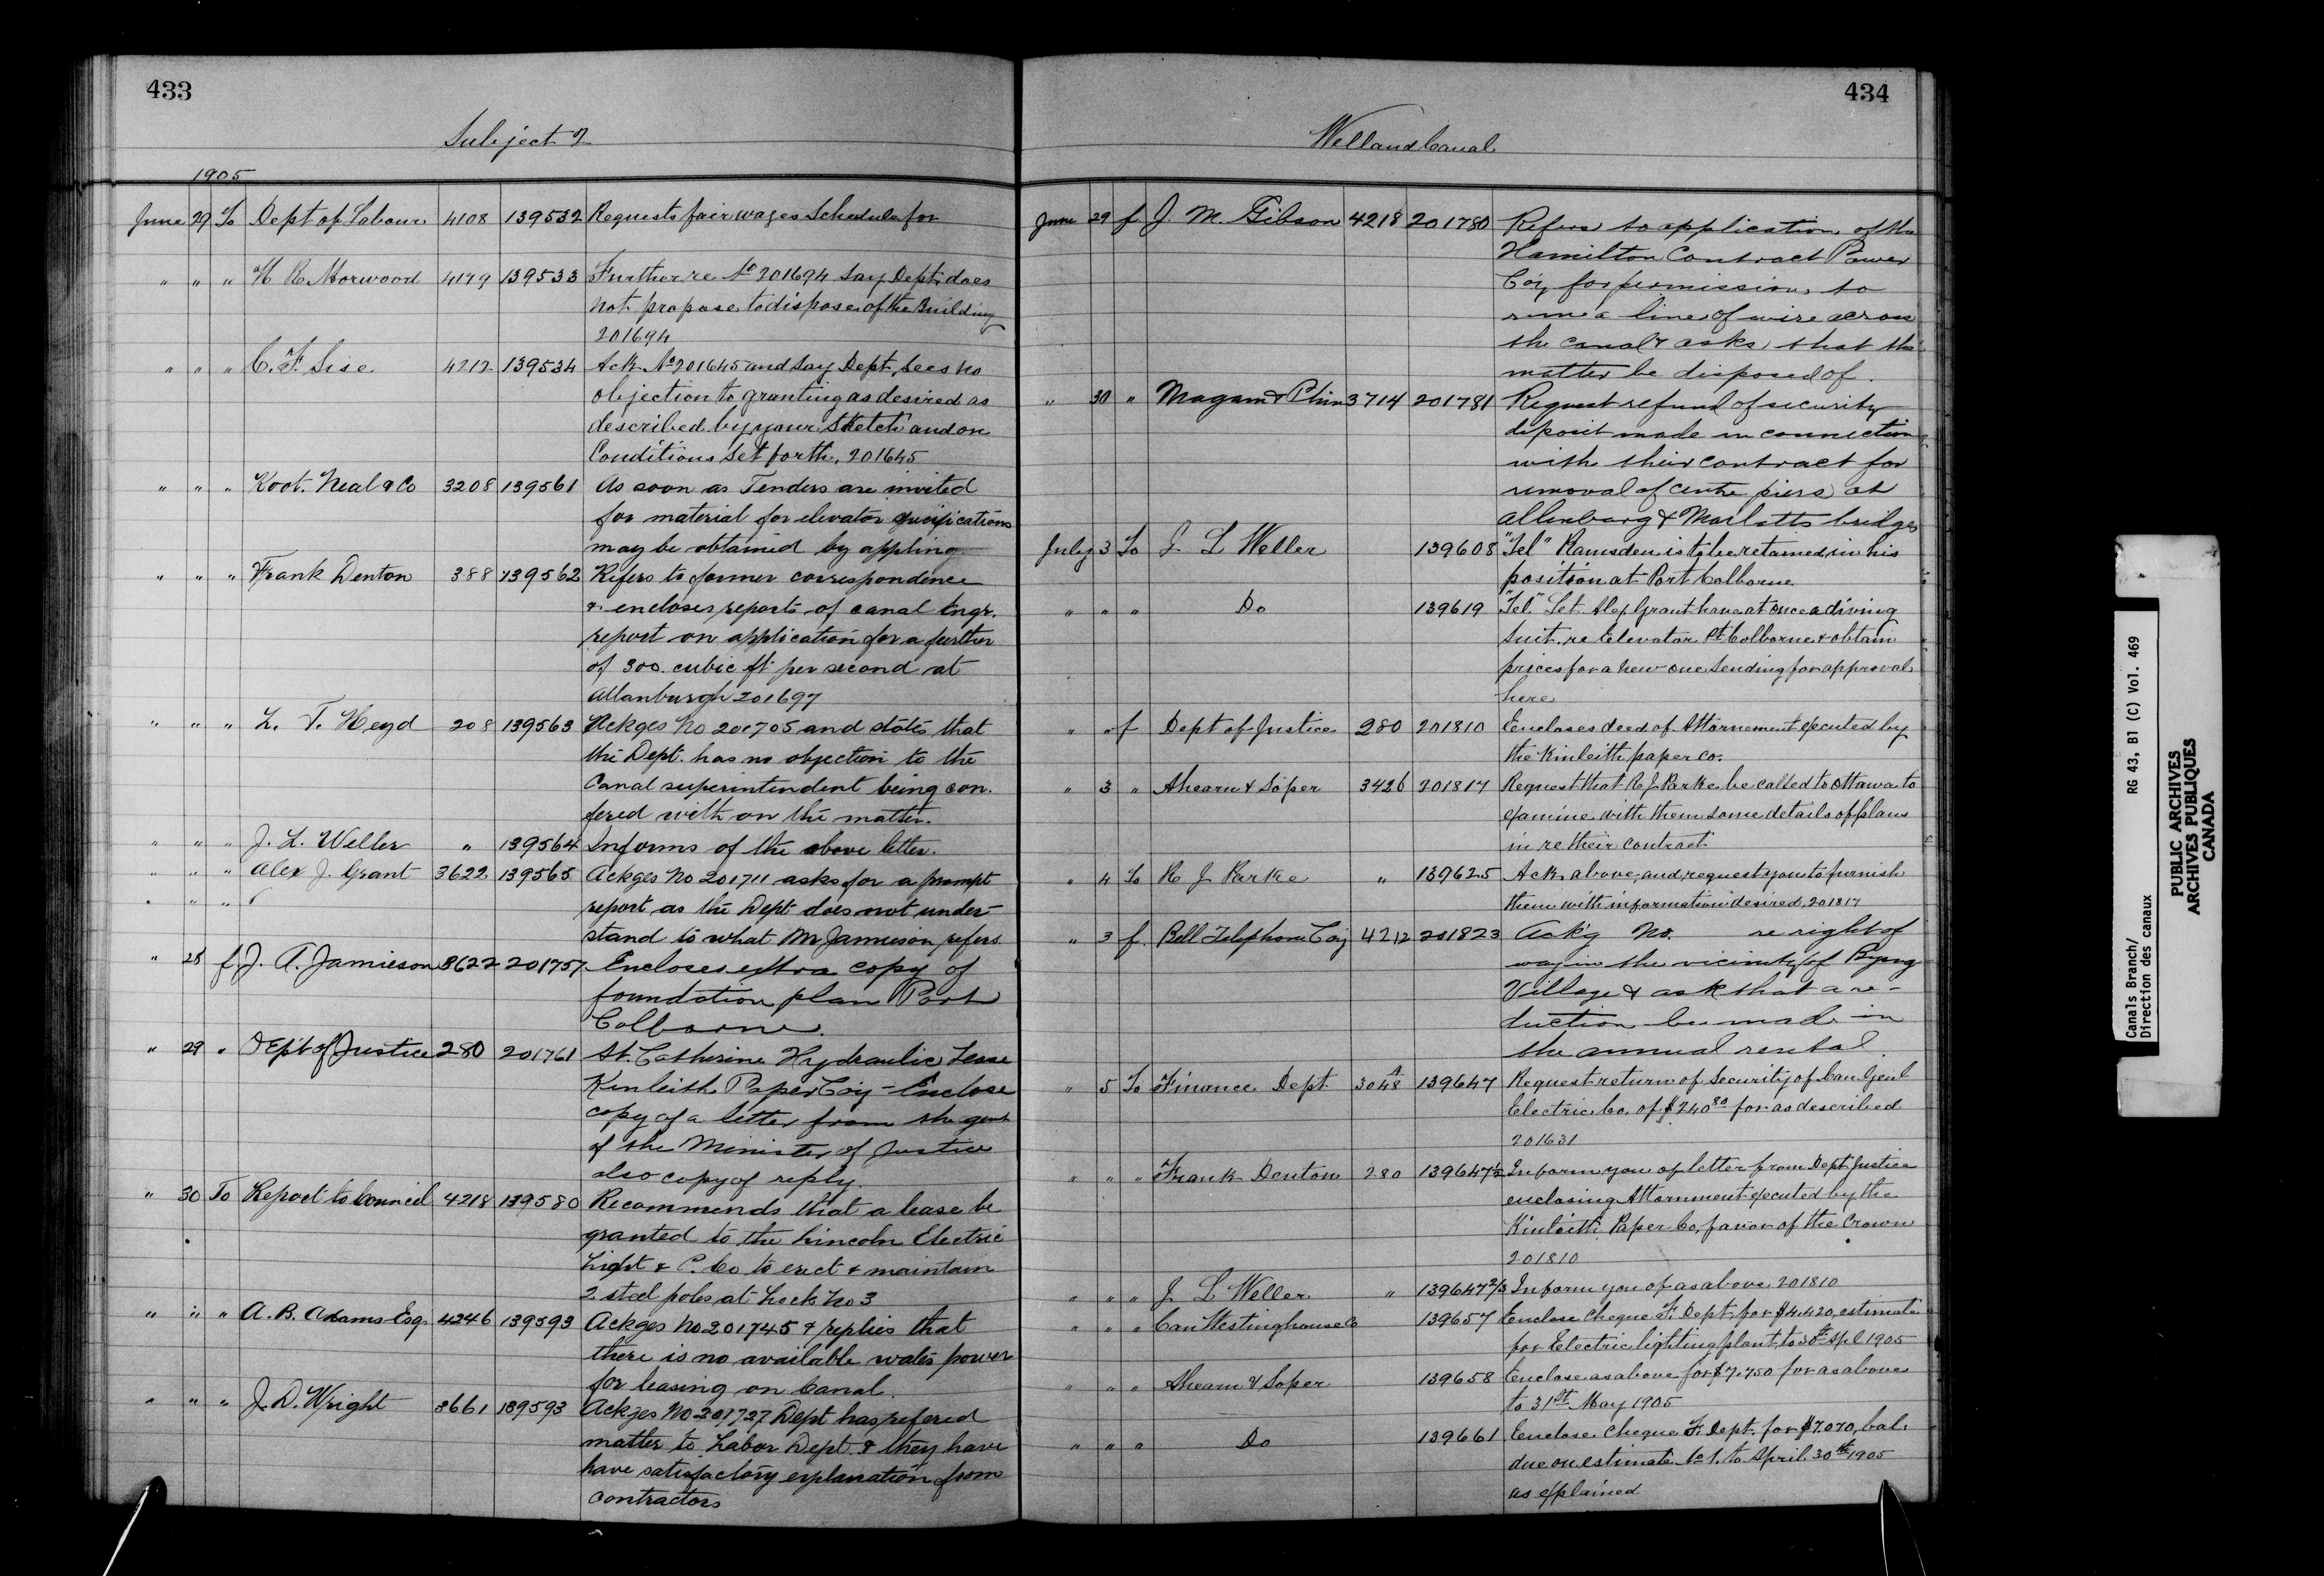 433
Subject of
1905
June 29 To Dept of Labour 4108 139532 Requests fair wages Schedule for
" " " H R Morwood 4179 139533 Further re No 201694 Say Dept. does
not propose to dispose of the Building
201694
" " " C. F. Sise 4212 139534 Ack No 201645 and Say Dept, sees no
objection to granting as desired as
described by your sketch and on
Conditions set forth, 201645
" " " Koct. Neal & Co 3208 139561 As soon as Tenders are invited
for material for elevator specifications
may be obtained by appling
" " " Frank Denton 388 139562 Refers to former correspondence
& encloses reports of canal Engr.
report on application for a further
of 300. cubic ft per second at
Allanburgh 201697
" " " L. T. Heyd 208 139563 Ackges No 201705 and states that
the Dept. has no objection to the
Canal superintendent being con-
fered with on the matter.
" " " J. L. Weller " 139564 Informs of the above letter.
" " " Alex J. Grant 3622 139565 Ackges No 201711 asks for a prompt
" " "
report as the Dept does not under-
stand to what Mr Jamieson refers
" 28 f J. A. Jamieson 3622 201757 Encloses extra copy of
foundation plan Port
Colborne.
" 29 " Dept of Justice 280 201761 St. Catherine Hydraulic Lease
Kinleith Paper Coy - Enclose
copy of a letter from the
of the Minister of Justice
also copy of reply.
" 30 To Report to Council 4218 139580 Recommends that a lease be
granted to the Lincoln Electric
Light & P. Co to erect & maintain
2 steel poles at Lock No 3
" " " A. B. Adams Esq. 4246 139593 Ackges No 201745 & replies that
there is no available water power
for leasing on Canal.
" " " J. D. Wright 3661 139593 Ackges No 201727 Dept has refered
matter to Labor Dept. & they have
have satisfactory explanation from
contractors
434
Welland Canal
June 29 f J. M. Gibson 4218 201780 Refers to application of the
Hamilton Contract Power
Coy for permission to
run a line of wire across
the canal & asks that the
matter be disposed of.
" 30 " Magann & Phin 3714 201781 Request refund of security
deposit made in connection
with their contract for
removal of centre piers at
Allenburg & Marlatts bridges
July 3 To J L Weller 139608 "Tel" Ramsden is to be retained in his
position at Port Colborne
" " " Do 139619 "Tel." Let Alex Grant have at once a diving
suit. re Elevator Pt. Colborne & obtain
prices for a new one sending for approval
here
" " f Dept of Justice 280 201810 Encloses deed of Attornement executed by
the Kinleith paper co.
" 3 " Ahearn & Soper 3426 201817 Request that R J Parke be called to Ottawa to
examine with them some details of plans
in re their contract
" 4 To R J Parke " 139625 Ack above, and request you to furnish
them with information desired, 201817
" 3 f. Bell Telephone Coy 4212 201823 Ack'g No. re right of
way in the vicinity of Byng
Village & ask that a re-
duction be made in
the annual rental.
" 5 To Finance Dept 3048 A 139647 Request return of Security of Can Genl
Electric Co. of $240 80 for as described
201631
" " " Frank Denton 280 139647½ Inform you of letter from Dept Justice
enclosing Attornment executed by the
Kinleith Paper Co, favor of the Crown
201810
" " " J L Weller " 139647 2/3 Inform you of as above 201810
" " " Can Westinghouse Co 139657 Enclose Cheque F. Dept. for $4,420, estimate
for Electric lighting plant, to 30th Apl 1905
" " " Ahearn & Soper 139658 Enclose as above for $7,750 for as above
to 31st May 1905
" " " Do 139661 Enclose Cheque F. Dept. for $7,070, bal.
due on estimate No 1. to April 30th 1905
as explained
Canals Branch/ RG 43, B1 (C) Vol. 469
Direction des canaux
PUBLIC ARCHIVES
ARCHIVES PUBLIQUES
CANADA